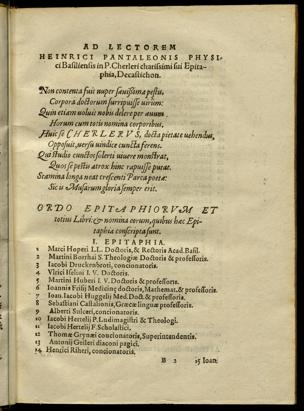 AD LECTOREM
HEINRICI PANTALEONIS PHYSI-
ci Basiliensis in P. Cherleri charissimi sui Epita-
phia, Decastichon.
Non contenta fuit nuper sæuissima pestis,
Corpora doctorum surripuisse uirûm:
Quin etiam uoluit nobis delere per æuum
Horum cum totis nomina corporibus.
Huic se CHERLERVS, docta pietate uehendus,
Opposuit, uersu uindice cuncta ferens.
Qui studio cunctos solerti uiuere monstrat,
Quos se pestis atrox hinc rapuisse putat.
Stamina longa neat crescenti Parca poetæ
Sic ut Musarum gloria semper erit.
ORDO EPITAPHIORVM ET
totius Libri: & nomina eorum, quibus hæc Epi-
taphia conscripta sunt.
I. EPITAPHIA.
1 Marci Hoperi LL. Doctoris, & Rectoris Acad. Basil.
2 Martini Borrhai S. Theologiæ Doctoris & professoris.
3 Iacobi Truckenbroti, concionatoris.
4 Vlrici Iselini I. V. Doctoris.
5 Martini Huberi I. V. Doctoris & professoris.
6 Ioannis Frisij Medicinæ doctoris, Mathemat. & professoris.
7 Ioan. Iacobi Huggelij Med. Doct. & professoris.
8 Sebastiani Castalionis, Græcæ linguæ professoris.
9 Alberti Sulceri, concionatoris.
10 Iacobi Hertelij P. Ludimagistri & Theologi.
11 Iacobi Hertelij F. Scholastici.
12 Thomæ Grynæi concionatoris, Superintendentis.
13 Antonij Geileri diaconi pagici.
14 Henrici Riheri, concionatoris.
B 2 15 Ioan: